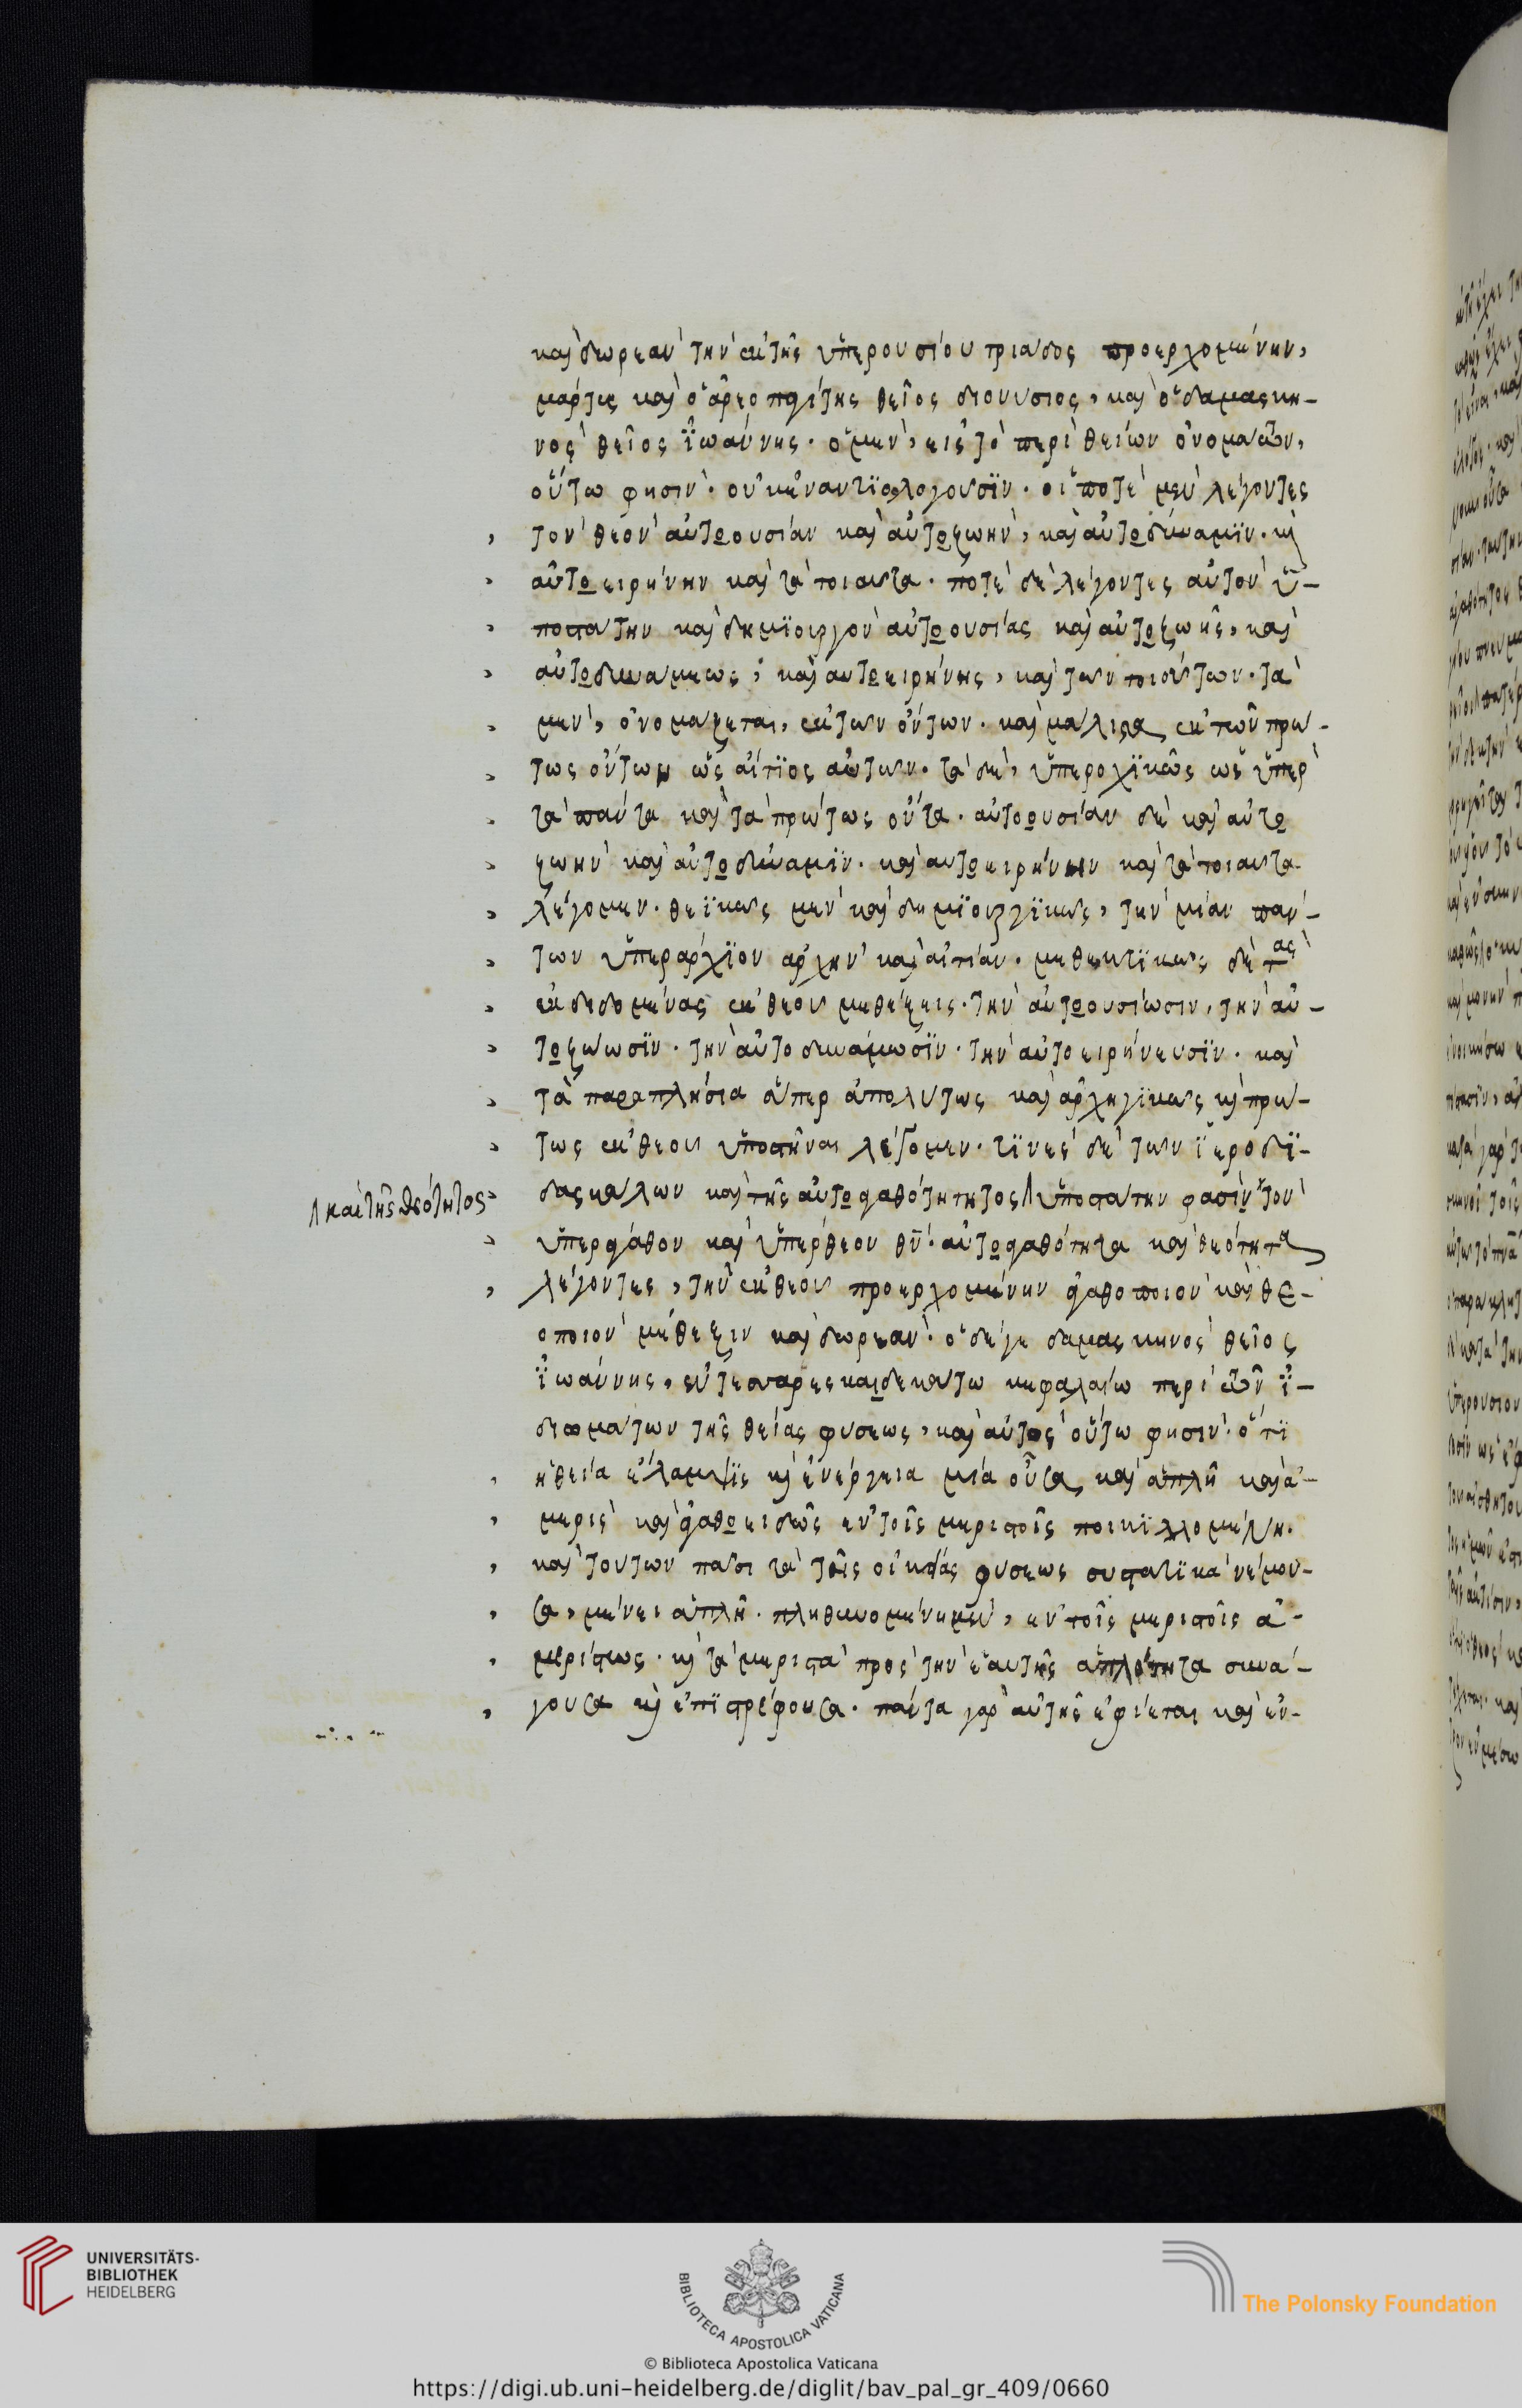 καὶ δωρεὰν τὴν ἐκ τῆς ὑπερουσίου τριάδος προερχομένην,
μάρτυς καὶ ὁ ἀρεοπαγίτης θεῖος διονύσιος, καὶ ὁ δαμασκη-
νὸς θεῖος ἰωάννης. ὁ μὲν, εἰς τὸ περὶ θείων ὀνομάτων,
οὕτω φησίν. οὐκ ἐναντιολογοῦσιν. οἱ ποτὲ μὲν λέγοντες
τὸν θεὸν αὐτοουσίαν καὶ αὐτοζωὴν, καὶ αὐτοδύναμιν. κὶ
αὐτοειρήνην καὶ τὰ τοιαῦτα. ποτὲ δὲ λέγοντες αὐτὸν ὑ-
ποστάτην καὶ δημιουργὸν αὐτοουσίας καὶ αὐτοζωῆς, καὶ
αὐτοδυνάμεως, καὶ αυτοειρήνης, καὶ τῶν τοιούτων. τὰ
μὲν, ὀνομάζεται, ἐκ τῶν ὄντων. καὶ μάλιστα ἐκ τῶν πρώ-
τως ὄντων ὡς αἴτιος αὐτῶν. τὰ δὲ, ὑπεροχικῶς ὡς ὑπὲρ
τὰ πάντα καὶ τὰ πρώτως ὄντα. αὐτοουσίαν δὲ καὶ αὐτο
ζωὴν καὶ αὐτοδύναμιν. καὶ αυτοειρήνην καὶ τὰ τοιαῦτα
λέγομεν. θεϊκῶς μὲν καὶ δημιουργικῶς, τὴν μίαν πάν-
των ὑπεράρχιον ἀρχὴν καὶ αἰτίαν. μεθεκτικῶς δὲ τὰς
ἐκδεδομένας ἐκ θεοῦ μεθέξεις. τὴν αὐτοουσίωσιν, τὴν αὐ-
τοζώωσιν. τὴν αὐτοδυνάμωσιν. τὴν αὐτοειρήνευσιν. καὶ
τὰ παραπλήσια ἅπερ ἀπολύτως καὶ ἀρχηγικῶς κὶ πρώ-
τως ἐκ θεοῦ ὑποστῆναι λέγομεν. τινὲς δὲ τῶν ἱεροδι-
δασκάλων καὶ τῆς αὐτοαγαθότητητος ὑποστάτην φασὶν τὸν
Λ καὶ τῆς θεότητος
ὑπεράγαθον καὶ ὑπέρθεον θν. αὐτοαγαθότητα καὶ θεότητα
λέγοντες, τὴν ἐκ θεοῦ προερχομένην ἀγαθοποιὸν καὶ θε-
οποιὸν μέθεξιν καὶ δωρεάν. ὁ δέ γε δαμασκηνὸς θεῖος
ἰωάννης, ἐν τεσσαρεσκαιδεκάτω κεφαλαίω περὶ τῶν ἰ-
διωμάτων τῆς θείας φύσεως, καὶ αὐτὸς οὕτω φησίν. ὅτι
ἡ θεία ἔλαμψις κὶ ἐνέργεια μία οὖσα, καὶ ἁπλῆ καὶ ἀ-
μερὶς καὶ ἀγαθοειδῶς ἐν τοῖς μεριστοῖς ποικιλλομένη.
καὶ τούτων πᾶσι τὰ τῆς οἰκείας φύσεως συστατικὰ νέμου-
σα, μένει ἁπλῆ. πληθυνομένη μὲν, ἐν τοῖς μεριστοῖς ἀ-
μερίστως. κὶ τὰ μεριστὰ πρὸς τὴν ἑαυτῆς ἁπλότητα συνά-
γουσα κὶ ἐπιστρέφουσα. πάντα γὰρ αὐτῆς ἐφίεται καὶ ἐν-
UNIVERSITÄTS-
BIBLIOTHEK
HEIDELBERG
BIBLIOTECA APOSTOLICA VATICANA
© Biblioteca Apostolica Vaticana
The Polonsky Foundation
https://digi.ub.uni-heidelberg.de/diglit/bav_pal_gr_409/0660